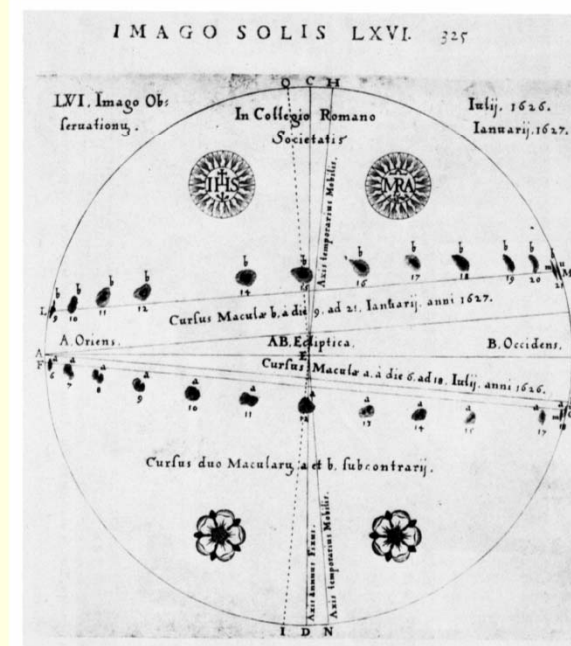 IMAGO SOLIS LXVI. 325
O C H
LVI. Imago Ob-
seruationũ.
In Collegio Romano
Societatis
Iulij. 1626.
Ianuarij. 1627.
IHS
MRA
Axis temporarius Mobilis.
b b b b b b b b b b b u
L 9 10 11 12 14 15 16 17 18 19 20 m 21 M
Cursus Maculæ b, à die 9. ad 21. Ianuarij. anni 1627.
A. Oriens. AB. Ecliptica. B. Occidens.
A E
F
Cursus Maculæ a. à die 6. ad 18. Iulij. anni 1626.
a a a a a a a a a a a a
6 7 8 9 10 11 12 13 14 15 17 m 18
Cursus duo Macularũ, a et b. subcontrarij.
Axis Annuus Fixus.
Axis temporarius Mobilis.
I D N